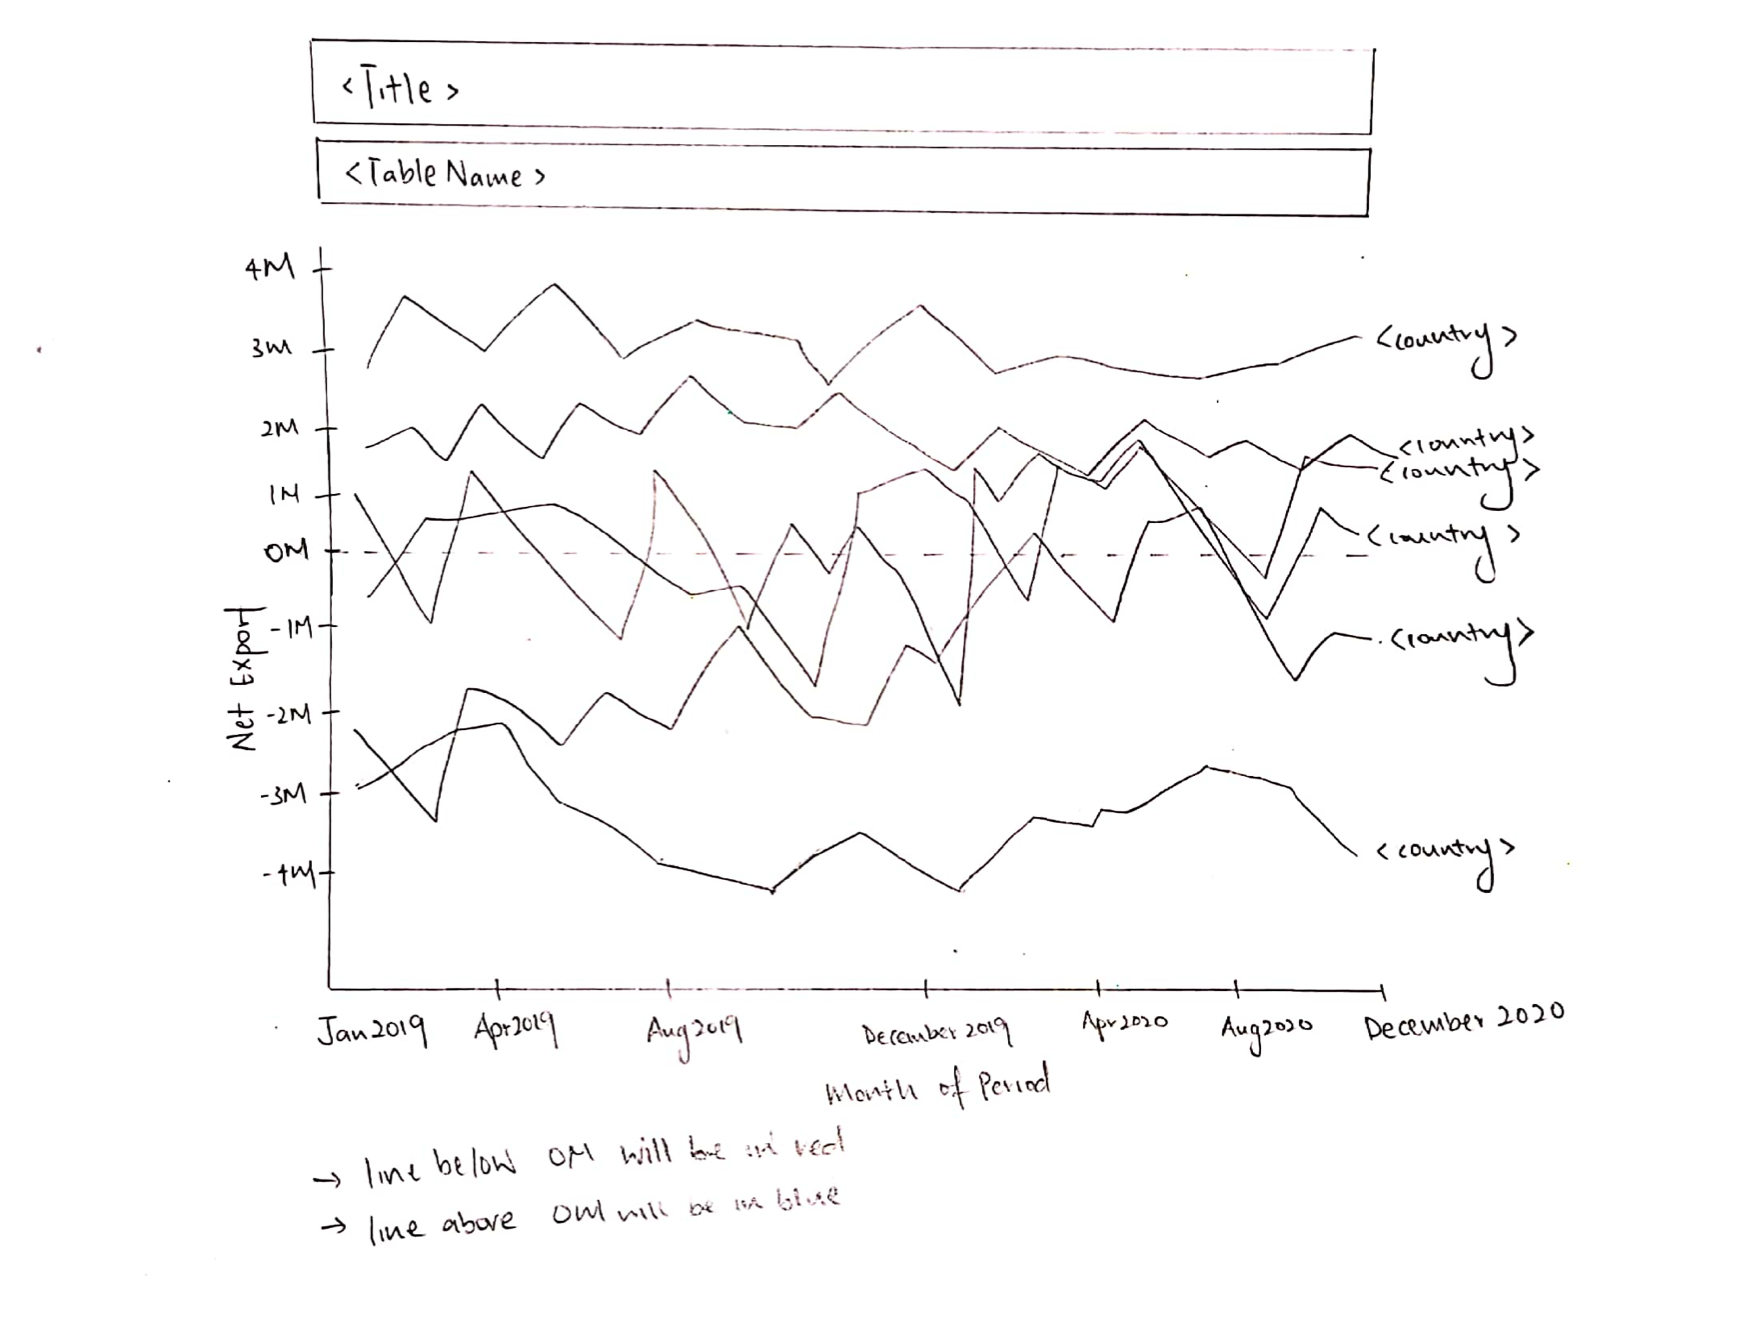 <Title>
<Table Name>
4M
3M
2M
1M
0M
-1M
-2M
-3M
-4M
Net Export
<country>
<country>
<country>
<country>
<country>
<country>
Jan 2019
Apr 2019
Aug 2019
December 2019
Apr 2020
Aug 2020
December 2020
Month of Period
→ line below 0M will be in red
→ line above 0M will be in blue